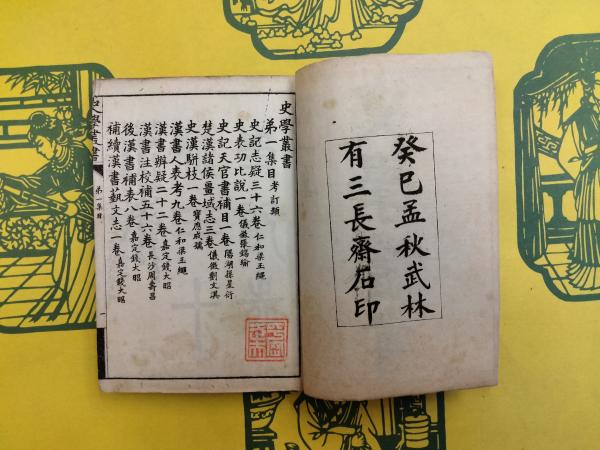 癸巳孟秋武林
有三長齋石印
史學叢書
弟一集目考訂類
史記志疑三十六卷仁和梁玉繩
史表功比說一卷儀徵張錫瑜
史記天官書補目一卷陽湖孫星衍
楚漢諸侯疆域志三卷儀徵劉文淇
史漢駢枝一卷寶應成孺
漢書人表考九卷仁和梁玉繩
漢書辨疑二十二卷嘉定錢大昭
漢書注校補五十六卷長沙周壽昌
後漢書補表八卷嘉定錢大昭
補續漢書藝文志一卷嘉定錢大昭
史學叢書
弟一集目
一